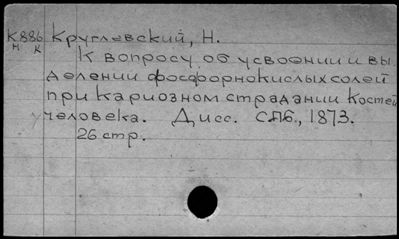 К886 Круглевский, Н.
н к
К вопросу об усвоении и вы
делении фосфорнокислых солей
при кариозном страдании костей
человека. Дисс. СПб., 1873.
26 стр.